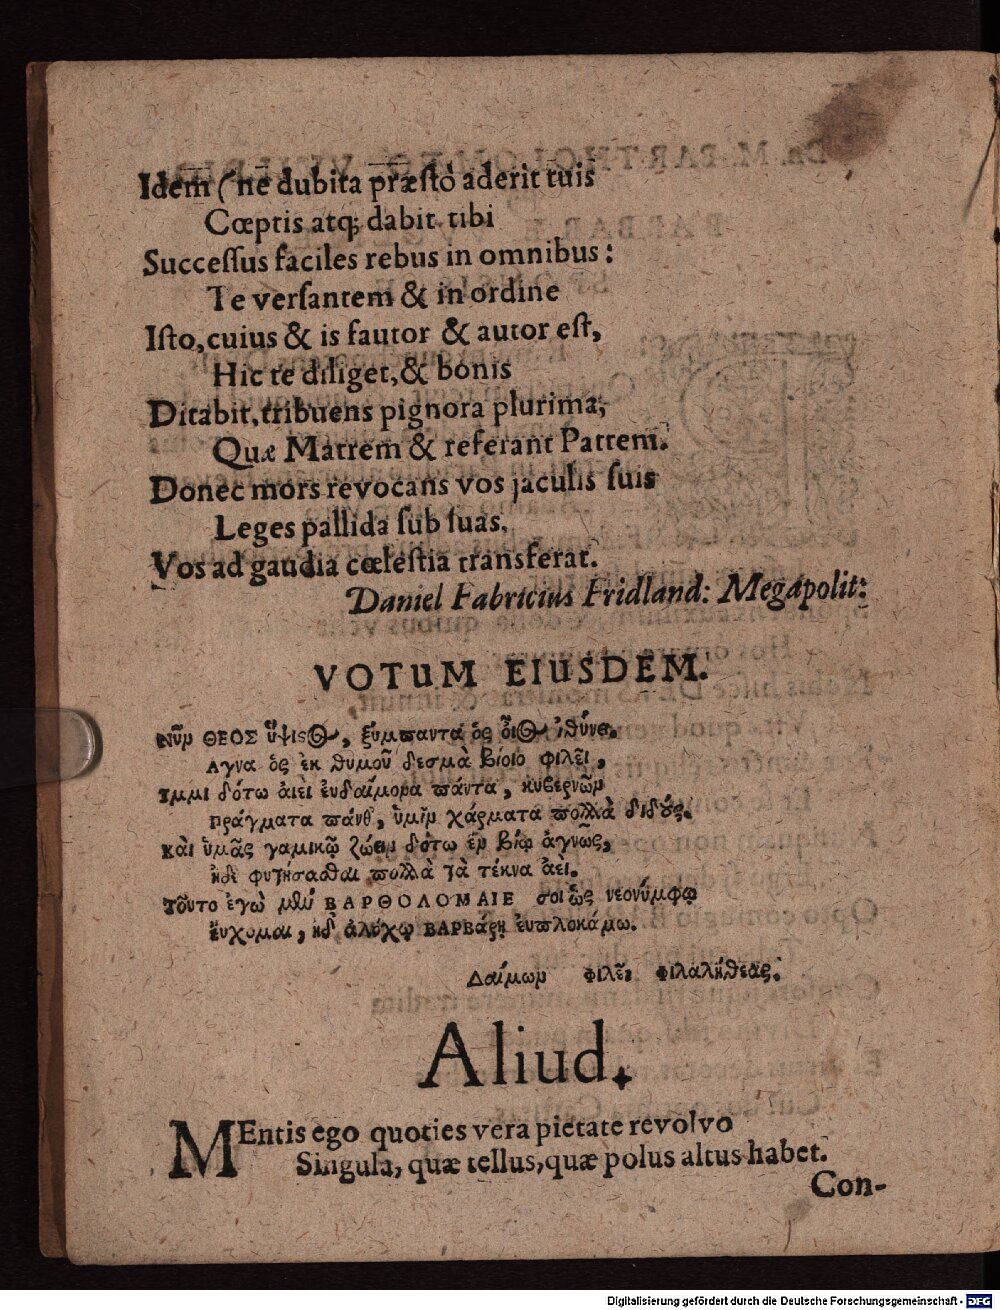 Idem (ne dubita præſtò aderit tuis
Cœptis atq; dabit tibi
Succeſſus faciles rebus in omnibus:
Te verſantem & in ordine
Iſto, cuius & is fautor & autor eſt,
Hic te diliget, & bonis
Ditabit, tribuens pignora plurima,
Quæ Matrem & referant Patrem.
Donec mors revocans vos jaculis ſuis
Leges pallida ſub ſuas,
Vos ad gaudia cœleſtia transferat.
Daniel Fabricius Fridland: Megapolit:
VOTUM EIUSDEM.
Νῦν ΘΕΟΣ ὕψιστος, ξύμπαντα ὃς οἶος ἰθύνει
Αγνα ὃς ἐκ θυμοῦ δεσμὰ βίοιο φιλεῖ,
Υ̓́μμι δότω ἀιεὶ ἐυδαίμονα πάντα, κυβερνῶν
Πράγματα πάνθ', ὑμῖν χάρματα πολλὰ διδούς.
Κὰι ὑμᾶς γαμικῷ ζώειν δότω ἐν βίῳ ἁγνῶς,
ἠδὲ φυτήσασθαι πολλὰ τὰ τέκνα ἀεὶ.
Τοῦτο ἐγὼ μὲν ΒΑΡΘΟΛΟΜΑΙΕ σοι ὡς νεονύμφῳ
ἔυχομαι, ἠδ' ἀλόχῳ ΒΑΡΒάρῃ ἐυπλοκάμῳ.
Δαίμων φιλεῖ φιλαλήθεας.
Aliud.
MEntis ego quoties vera pietate revolvo
Singula, quæ tellus, quæ polus altus habet.
Con-
Digitalisierung gefördert durch die Deutsche Forschungsgemeinschaft - DFG